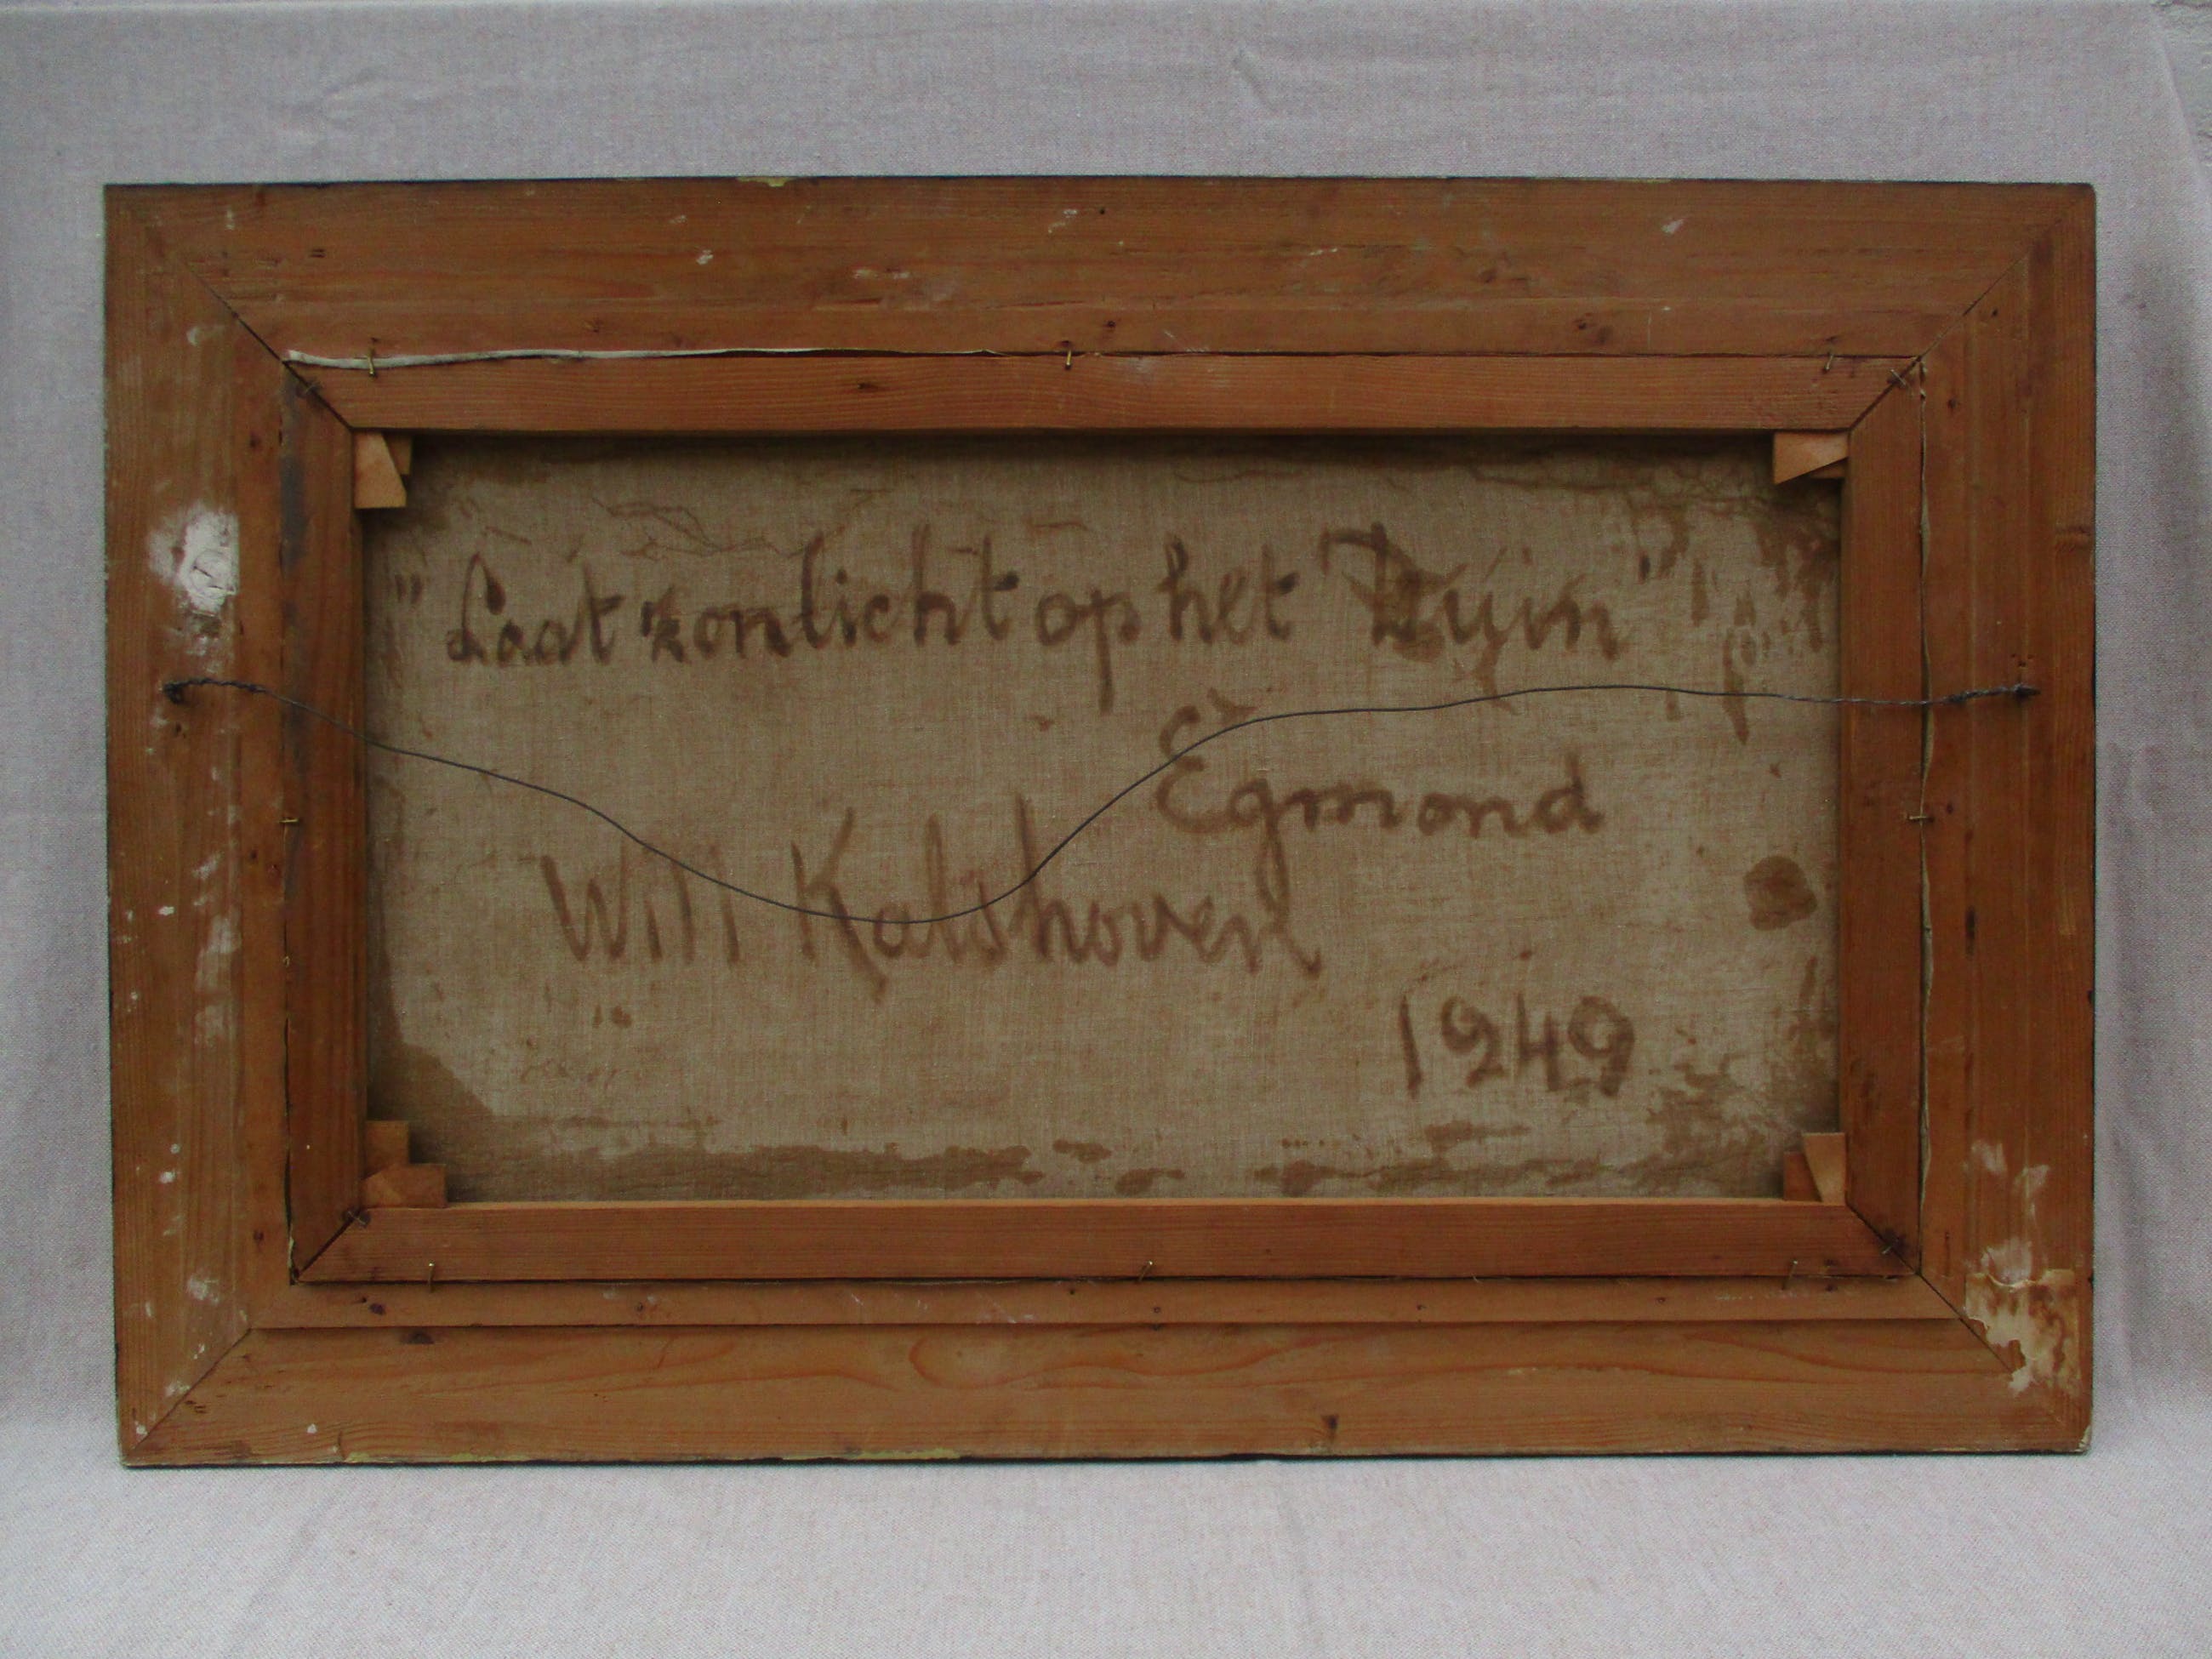 "Laat zonlicht op het Duin"
Egmond
Will Kalshoven
1949